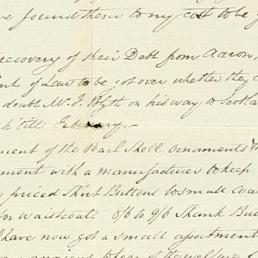 found them to my cost to be
recovery of their Debt from Aaron,
of Law to be got over whether they
doubt Mr. J. Blyth on his way to Scotla
'till February.
ment of the Pearl Shell ornaments
ment with a manufacturer to keep
priced Shirt Buttons to small Coa
for Waistcoats 5/6 to 9/6 Shank But
have now got a small apartment